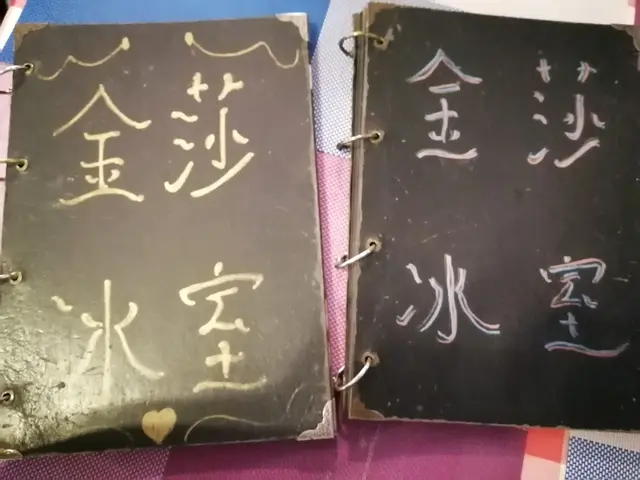 金莎
冰室
金莎
冰室